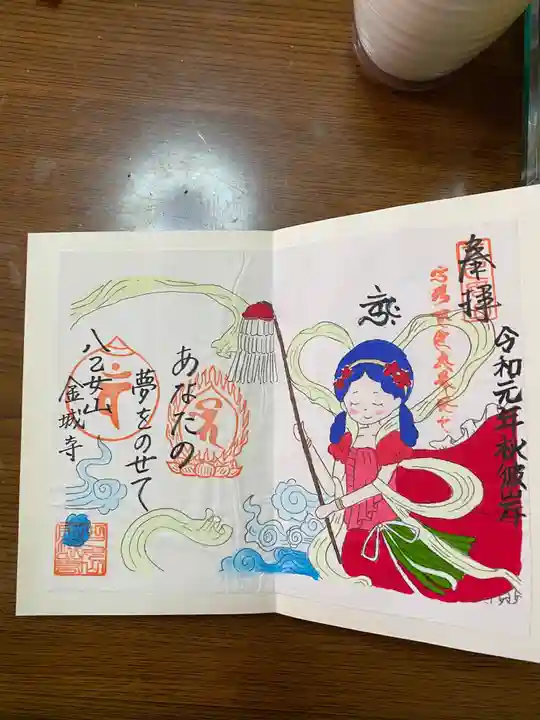 奉拝
令和元年秋彼岸
あなたの
夢をのせて
八乙女山
金城寺